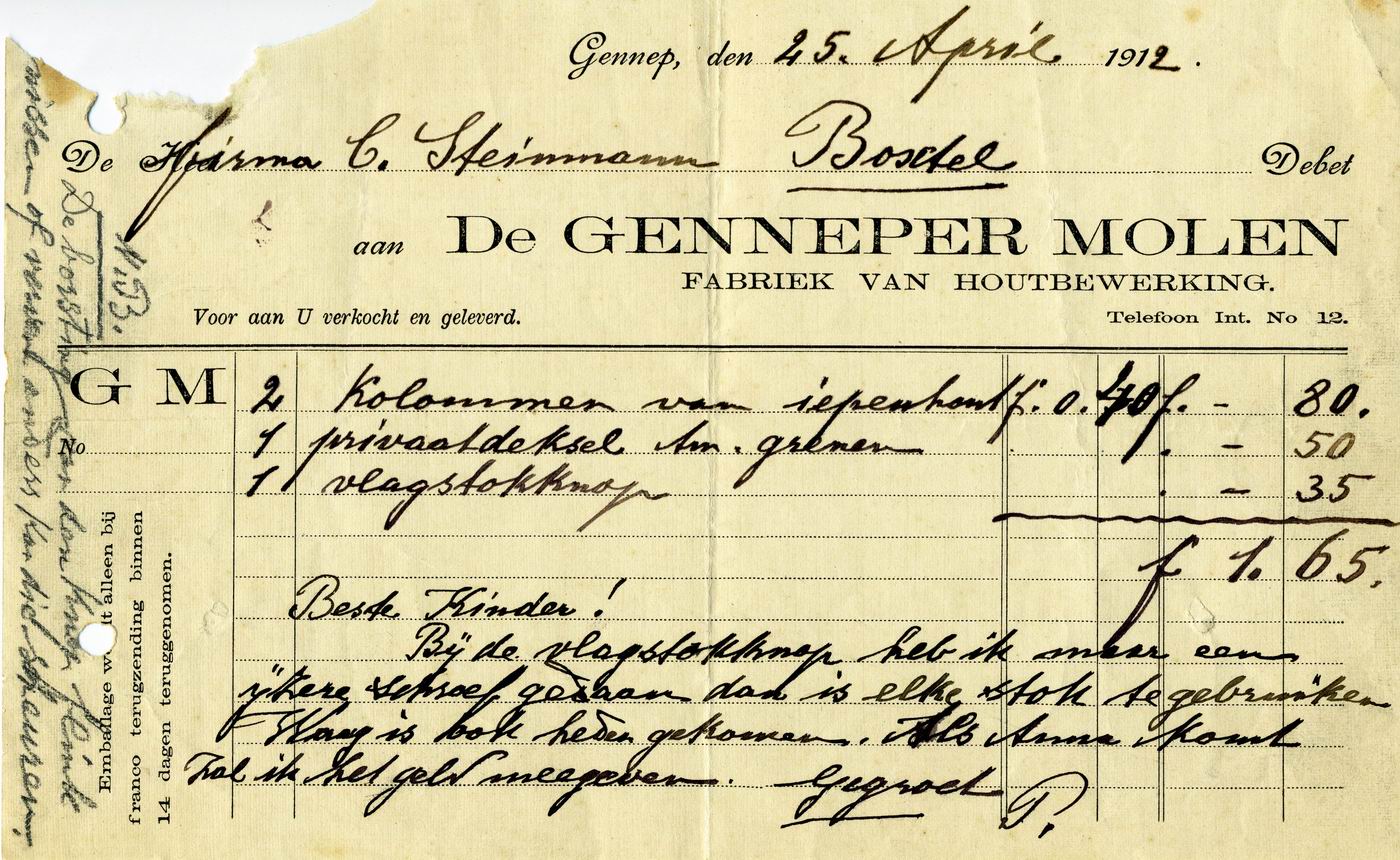 Gennep, den 25. April 1912.
De Firma C. Steinmann Boxtel Debet
aan De GENNEPER MOLEN
FABRIEK VAN HOUTBEWERKING.
Voor aan U verkocht en geleverd. Telefoon Int. No 12.
G M
No
2 Kolommen van iepenhout f. 0.40 f. - 80.
1 privaatdeksel Am. grenen . - 50
1 vlagstokknop . - 35
f 1. 65.
Beste Kinder!
Bij de vlagstokknop heb ik maar een
ijzere schroef gedaan dan is elke stok te gebruiken
Waag is ook heden gekomen. Als Anna komt
Zal ik het geld meegeven. Gegroet
P.
Emballage wordt alleen bij
franco terugzending binnen
14 dagen teruggenomen.
N.B.
De borsting van den knop flink
of anders kan die scheuren.